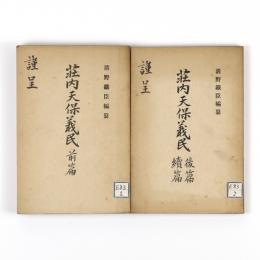 謹呈
莊内天保義民 前篇
清野鐵臣編纂
謹呈
莊内天保義民 後篇 續篇
清野鐵臣編纂